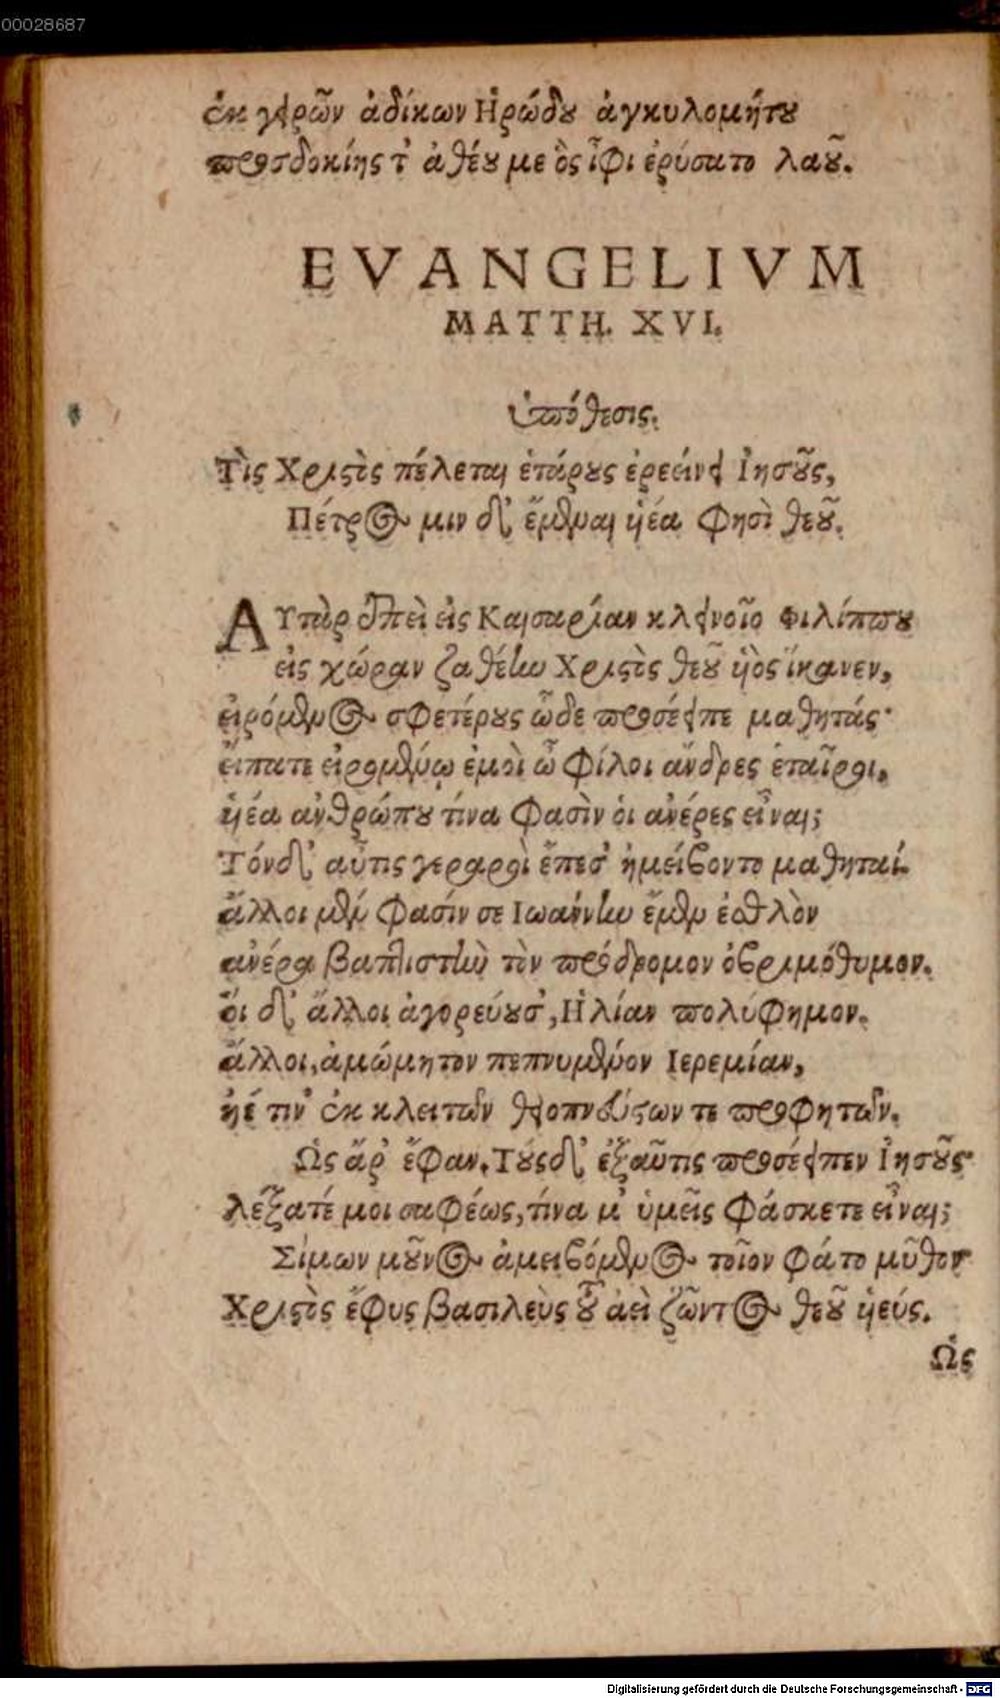 00028687
ἐκ χειρῶν ἀδίκων Ἡρώδου ἀγκυλομήτου
προσδοκίης τ' ἀθέου με ὃς ἶφι ἐρύσατο λαοῦ.
EVANGELIVM
MATTH. XVI.
ὑπόθεσις.
Τὶς Χριστὸς πέλεται ἑτάρους ἐρεείνει Ἰησοῦς,
Πέτρος μιν δ' ἔμμεναι ὑέα φησὶ θεοῦ.
Αὐτὰρ ἐπεὶ εἰς Καισαρίαν κλεινοῖο Φιλίππου
εἰς χώραν ζαθέην Χριστὸς θεοῦ ὑὸς ἵκανεν,
εἰρόμενος σφετέρους ὧδε προσέειπε μαθητάς·
εἴπατε εἰρομένῳ ἐμοὶ ὦ φίλοι ἄνδρες ἑταῖροι,
ὑέα ἀνθρώπου τίνα φασὶν οἱ ἀνέρες εἶναι;
Τόνδ' αὖτις γεραροὶ ἔπεσ' ἠμείβοντο μαθηταί.
ἄλλοι μέν φασίν σε Ἰωάννην ἔμεν ἐσθλὸν
ἀνέρα βαπτιστὴν τὸν πρόδρομον ὀβριμόθυμον.
οἵ δ' ἄλλοι ἀγορεύουσ', Ἠλίαν πολύφημον.
ἄλλοι, ἀμώμητον πεπνυμένον Ἱερεμίαν,
ἠέ τιν' ἐκ κλειτῶν θεοπνεύστων τε προφητῶν.
Ὣς ἄρ' ἔφαν. Τούσδ' ἐξαῦτις προσέειπεν Ἰησοῦς·
λέξατέ μοι σαφέως, τίνα μ' ὑμεῖς φάσκετε εἶναι;
Σίμων μοῦνος ἀμειβόμενος τοῖον φάτο μῦθον·
Χριστὸς ἔφυς βασιλεὺς οὗ ἀεὶ ζῶντος θεοῦ ὑεύς.
Ὣς
Digitalisierung gefördert durch die Deutsche Forschungsgemeinschaft - DFG